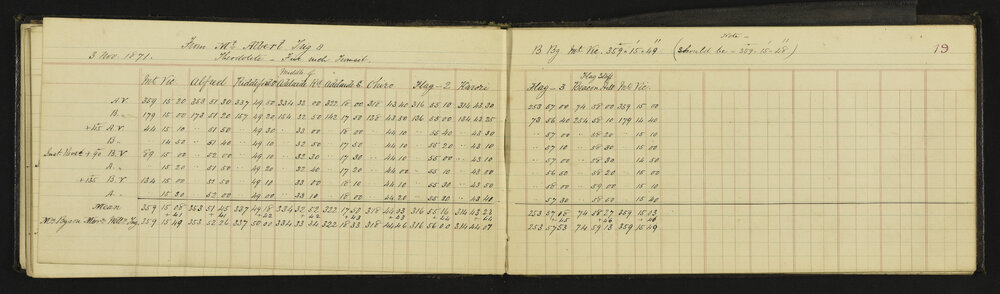 From Mt. Albert Trig S
3 Nov. 1871. Theodolite - Five inch Transit.
Mt Vic Alfred Kiddifield Middle of Adelaide Rd Adelaide E Ohiro Flag - 2 Karori
A.V. 359 15 20 253 51 30 337 49 50 334 32 00 322 18 00 318 43 40 316 55 10 314 43 30
B.. 179 15 00 173 51 20 157 49 20 154 32 50 142 17 50 138 43 50 136 55 00 134 43 25
+45 A.V. 44 15 10 .. 51 50 .. 49 30 .. 33 00 .. 18 00 .. 44 10 .. 55 40 .. 43 30
B.. 14 50 .. 51 40 .. 49 10 .. 32 50 .. 17 50 .. 44 10 .. 55 20 .. 43 10
+90 B.V. 89 15 00 .. 52 00 .. 49 10 .. 32 30 .. 17 30 .. 44 10 .. 55 00 .. 43 10
A.. .. 15 20 .. 51 50 .. 49 20 .. 32 40 .. 17 20 .. 44 00 .. 55 10 .. 43 00
+135 B.V. 134 15 00 .. 52 50 .. 49 10 .. 33 00 .. 18 10 .. 44 10 .. 55 30 .. 43 50
A.. 15 30 .. 52 00 .. 49 00 .. 33 10 .. 18 00 .. 44 20 .. 55 20 .. 43 40
Mean 359 15 08 253 51 45 337 49 18 334 32 52 322 17 52 318 44 03 316 55 16 314 43 23
+41 +41 +42 +42 +43 +43 +44 +44
359 15 49 253 52 26 337 50 00 334 33 34 322 18 33 318 44 46 316 56 00 314 44 07
Note -
B By Mt Vic 359°-15'-49" (Should be - 359-15'-48") 19
Flag Staff
Flag - 3 Beacon Hill Mt Vic
253 57 00 74 58 00 359 15 00
73 56 40 254 58 10 179 14 40
.. 57 00 .. 58 20 .. 15 10
.. 57 10 .. 58 30 .. 15 00
.. 57 00 .. 58 30 .. 14 50
.. 56 50 .. 58 20 .. 15 00
.. 58 00 .. 59 00 .. 15 10
.. 57 30 .. 58 60 .. 15 40
253 57 08 74 58 27 359 15 03
+45 +46 +46
253 57 53 74 59 13 359 15 49